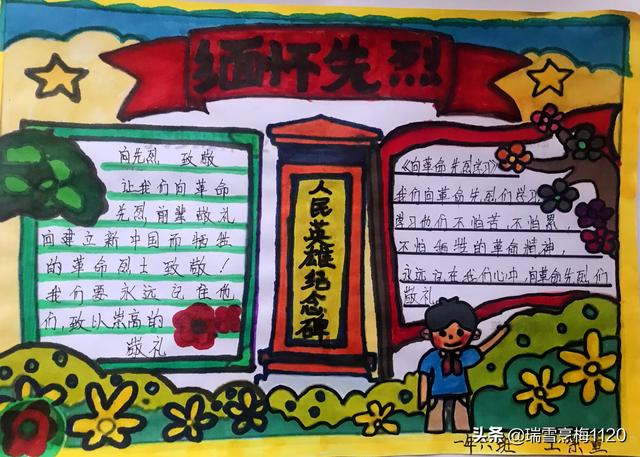 缅怀先烈
向先烈 致敬
让我们向革命
先烈前辈敬礼
向建立新中国而牺牲
的革命烈士致敬！
我们要永远记住他
们，致以崇高的
敬礼
人民英雄纪念碑
《向革命先烈学习》
我们向革命先烈们学习
学习他们不怕苦，不怕累，
不怕牺牲的革命精神，
永远记在我们心中，向革命先烈们
敬礼
一年六班
头条 @瑞雪亮梅1120